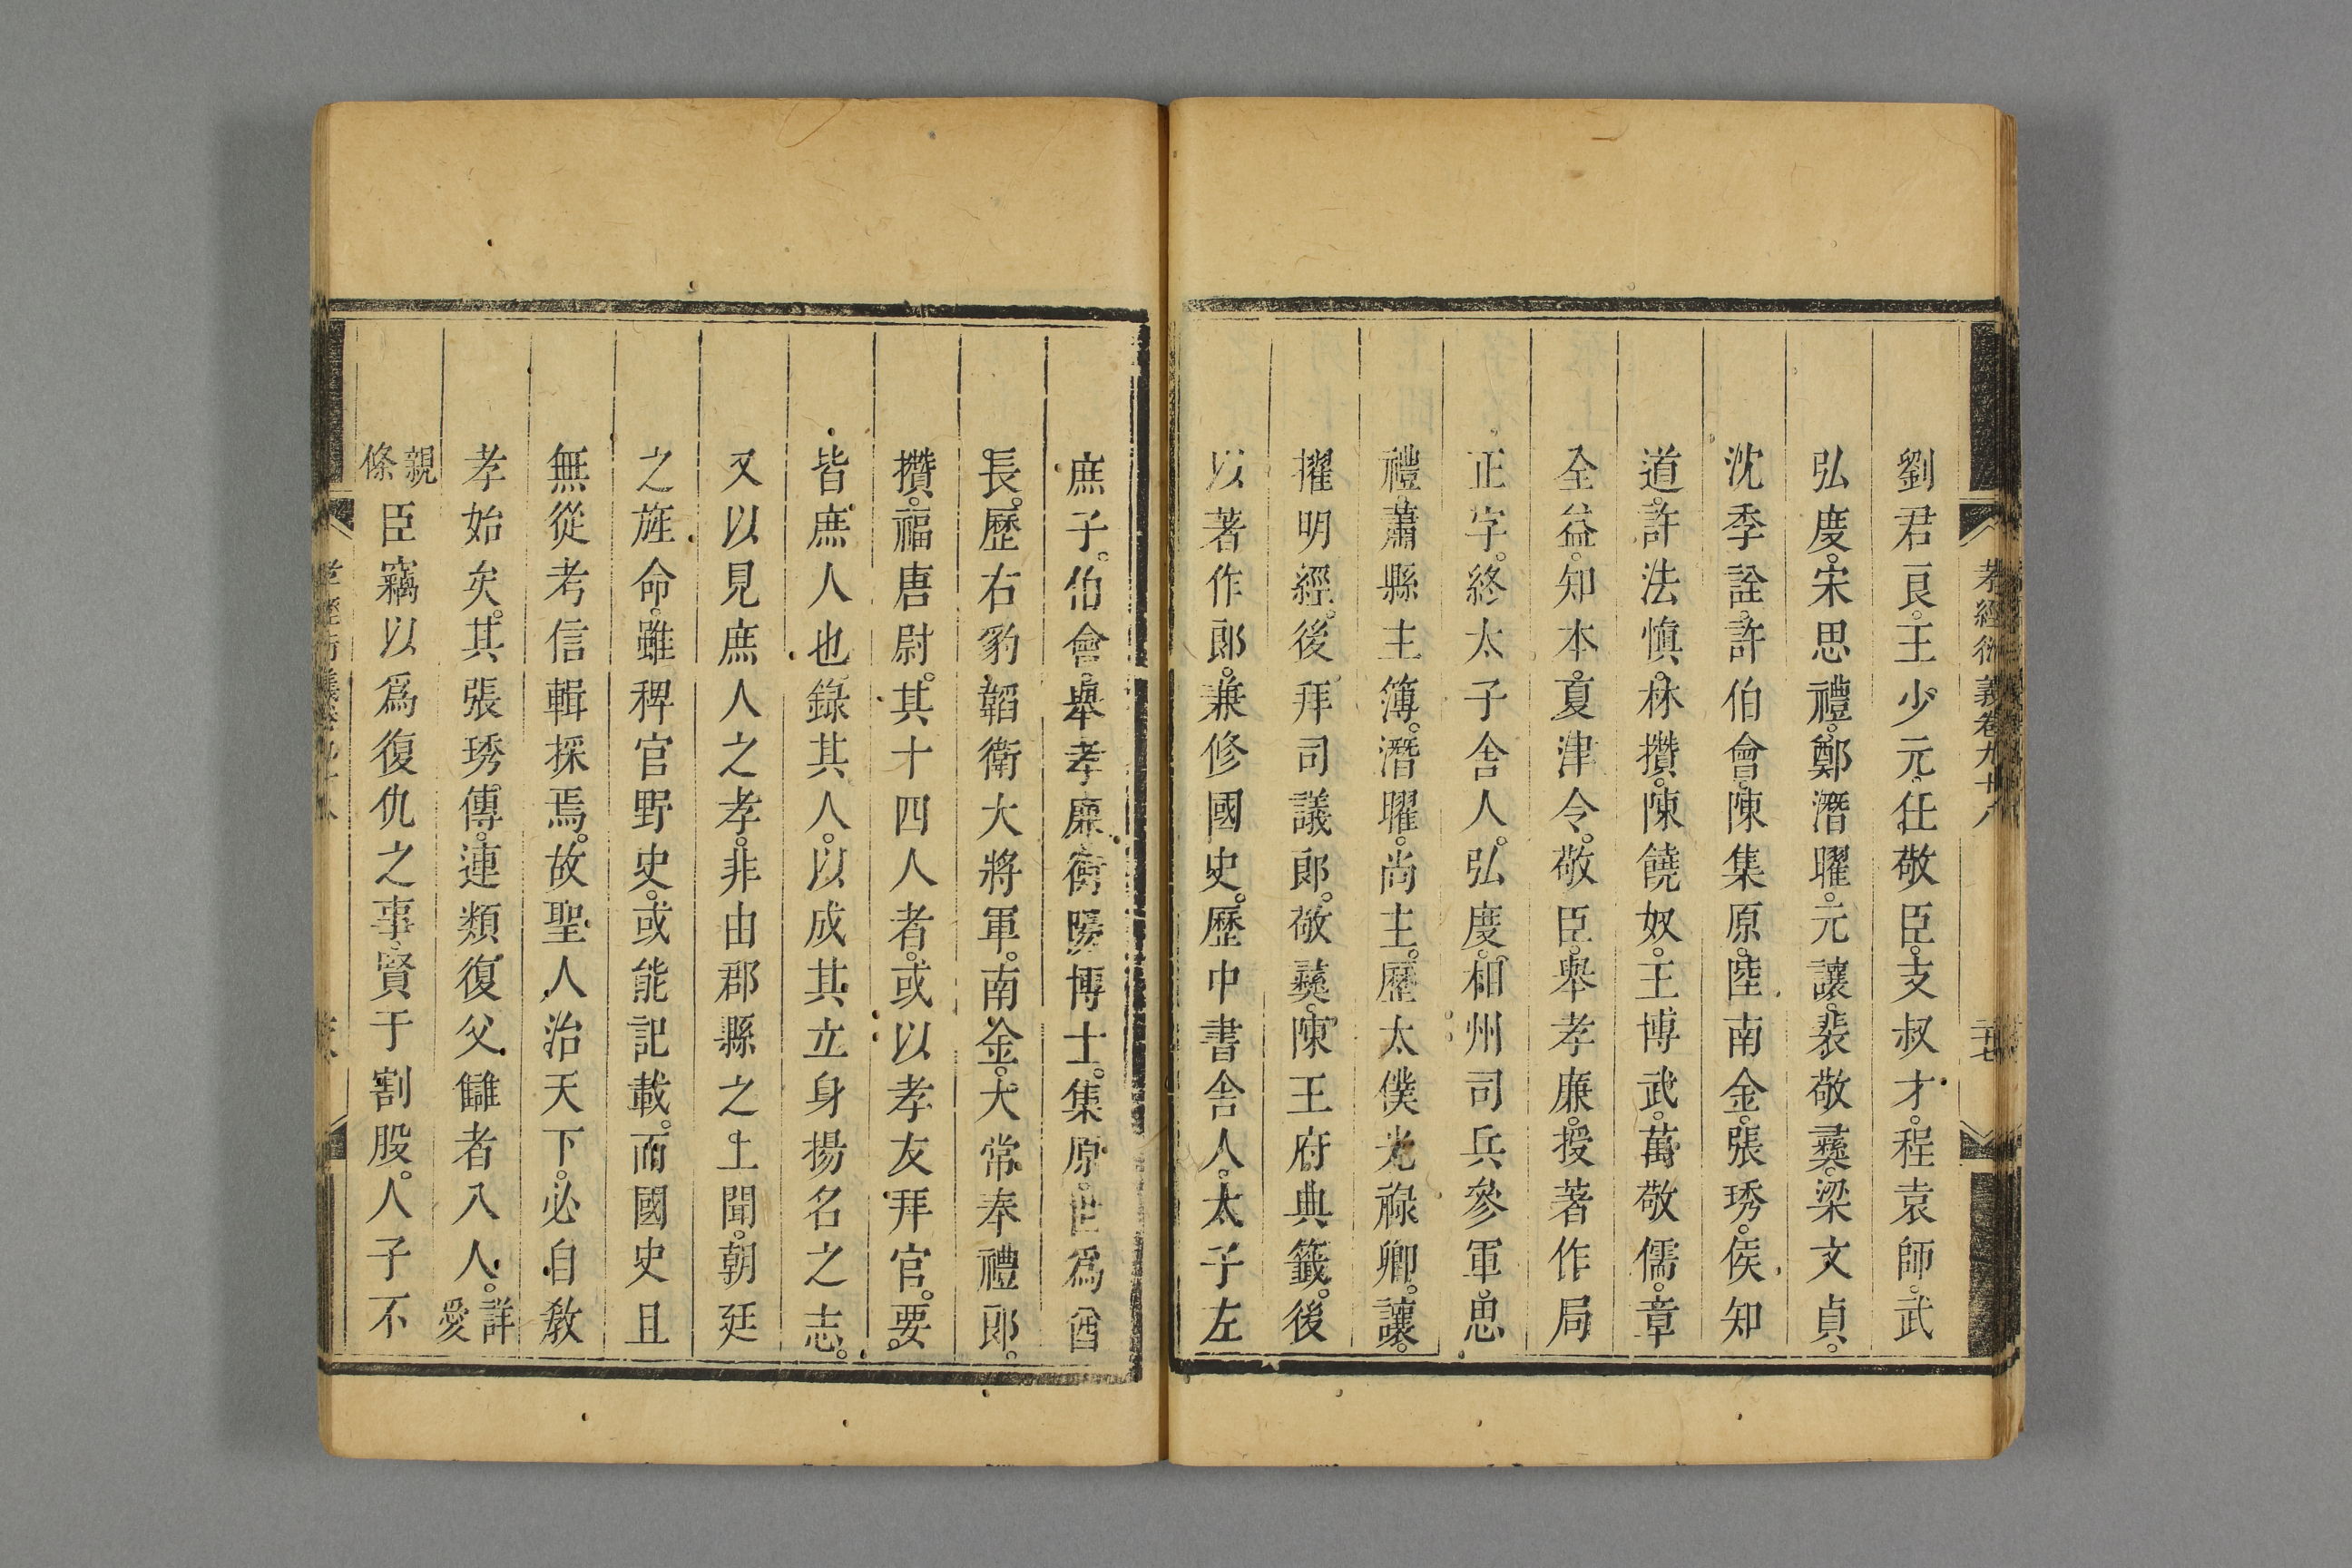 孝經衍義卷九十八
劉君良。王少元。任敬臣。支叔才。程袁師。武
弘度。宋思禮。鄭潛曜。元讓。裴敬彞。梁文貞。
沈季詮。許伯會。陳集原。陸南金。張琇。侯知
道。許法愼。林攢。陳饒奴。王博武。萬敬儒。章
全益。知本。夏津令。敬臣。舉孝廉。授著作局
正字。終太子舍人。弘度。相州司兵參軍。思
禮。蕭縣主簿。潛曜。尚主。歷太僕光祿卿。讓。
擢明經。後拜司議郎。敬彞。陳王府典籤。後
以著作郎。兼修國史。歷中書舍人。太子左
庶子。伯會。舉孝廉。衡陽博士。集原。世爲酋
長。歷右豹韜衛大將軍。南金。太常奉禮郎。
攢。福唐尉。其十四人者。或以孝友拜官。要。
皆庶人也。錄其人。以成其立身揚名之志。
又以見庶人之孝。非由郡縣之上聞。朝廷
之旌命。雖稗官野史。或能記載。而國史且
無從考信輯採焉。故聖人治天下。必自敎
孝始矣。其張琇傳。連類復父讎者八人。詳愛
親條臣竊以爲復仇之事。賢于割股。人子不